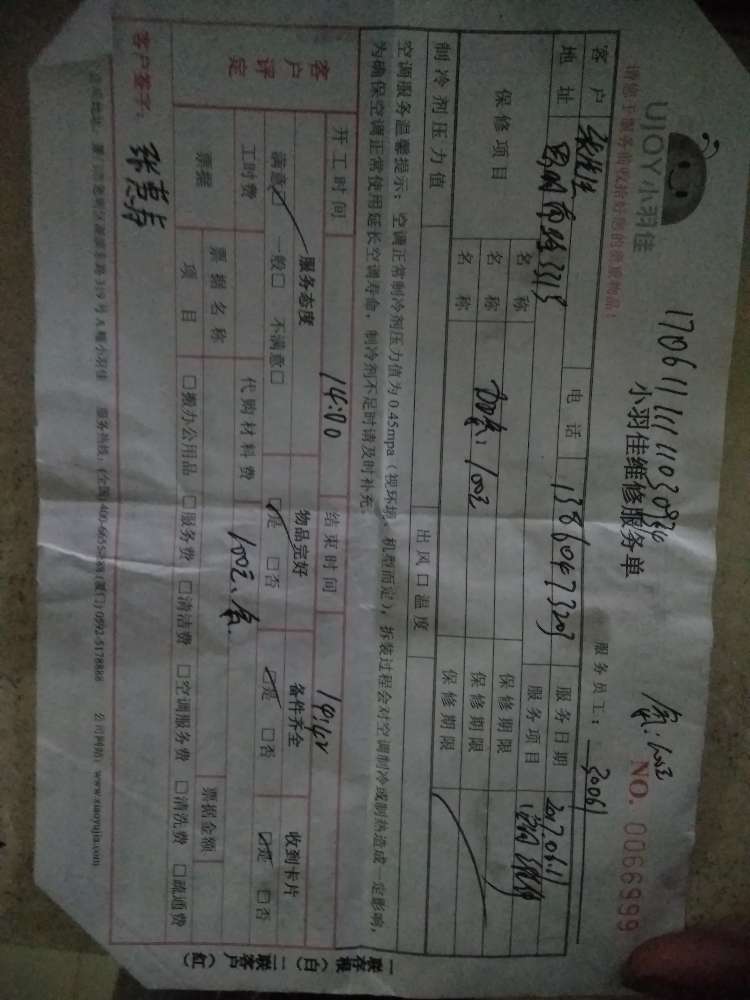 UJOY小羽佳
请您于服务前收拾好您的贵重物品!
小羽佳维修服务单
NO. 0066999
服务员工: 30061
客户 电话 服务日期 2017.06.11
地址 服务项目
保修项目 名称 保修期限
名称 加氨:100元 保修期限
名称 保修期限
制冷剂压力值 出风口温度
空调服务温馨提示:空调正常制冷剂压力值为0.45mpa(视环境、机型而定),拆装过程会对空调制冷或制热造成一定影响,
为确保空调正常使用延长空调寿命,制冷剂不足时请及时补充。
开工时间 14:00 结束时间 14:42
客户评定 服务态度 物品完好 备件齐全 收到卡片
满意☑ 一般□ 不满意□ ☑是 □否 ☑是 □否 ☑是 □否
工时费 代购材料费 100元
票据 票据名称 票据金额
项目 □搬办公用品 □服务费 □清洁费 □空调服务费 □清洗费 □疏通费
客户签字:
服务热线:(全国)400-665 (厦门)0592-5178888 公司网站:www.xiaoyujia.com
一联存根(白) 二联客户(红)